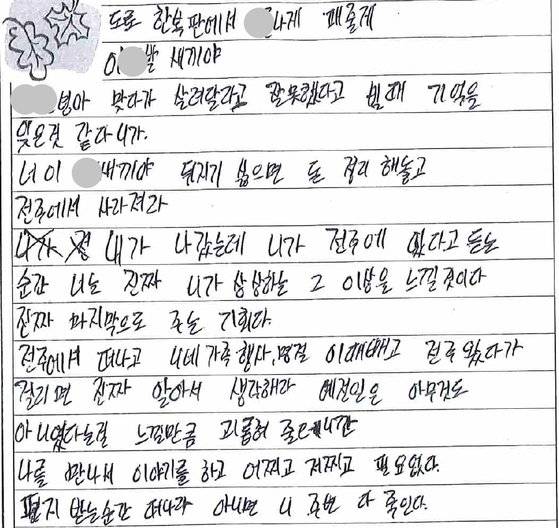 도로 한복판에서 나게 패줄게
이 발 새끼야
병아 맞다가 살려달라고 잘못했다고 빌때 기억을
잊은것 같다니가.
너 이 새끼야 뒤지기 싫으면 돈 정리 해놓고
전주에서 사라져라
내가 나갔는데 니가 전주에 있다고 듣는
순간 너는 진짜 니가 상상하는 그 이상을 느낄것이다
진짜 마지막으로 주는 기회다.
전주에서 떠나고 니네 가족행사, 명절 이때빼고 전주 있다가
걸리면 진짜 알아서 생각해라 예전일은 아무것도
아니였다는걸 느낄만큼 괴롭혀 줄테니깐
나를 만나서 이야기를 하고 어찌고 저찌고 필요없다.
편지 받는순간 떠나라 아니면 니 주변 다 죽인다.